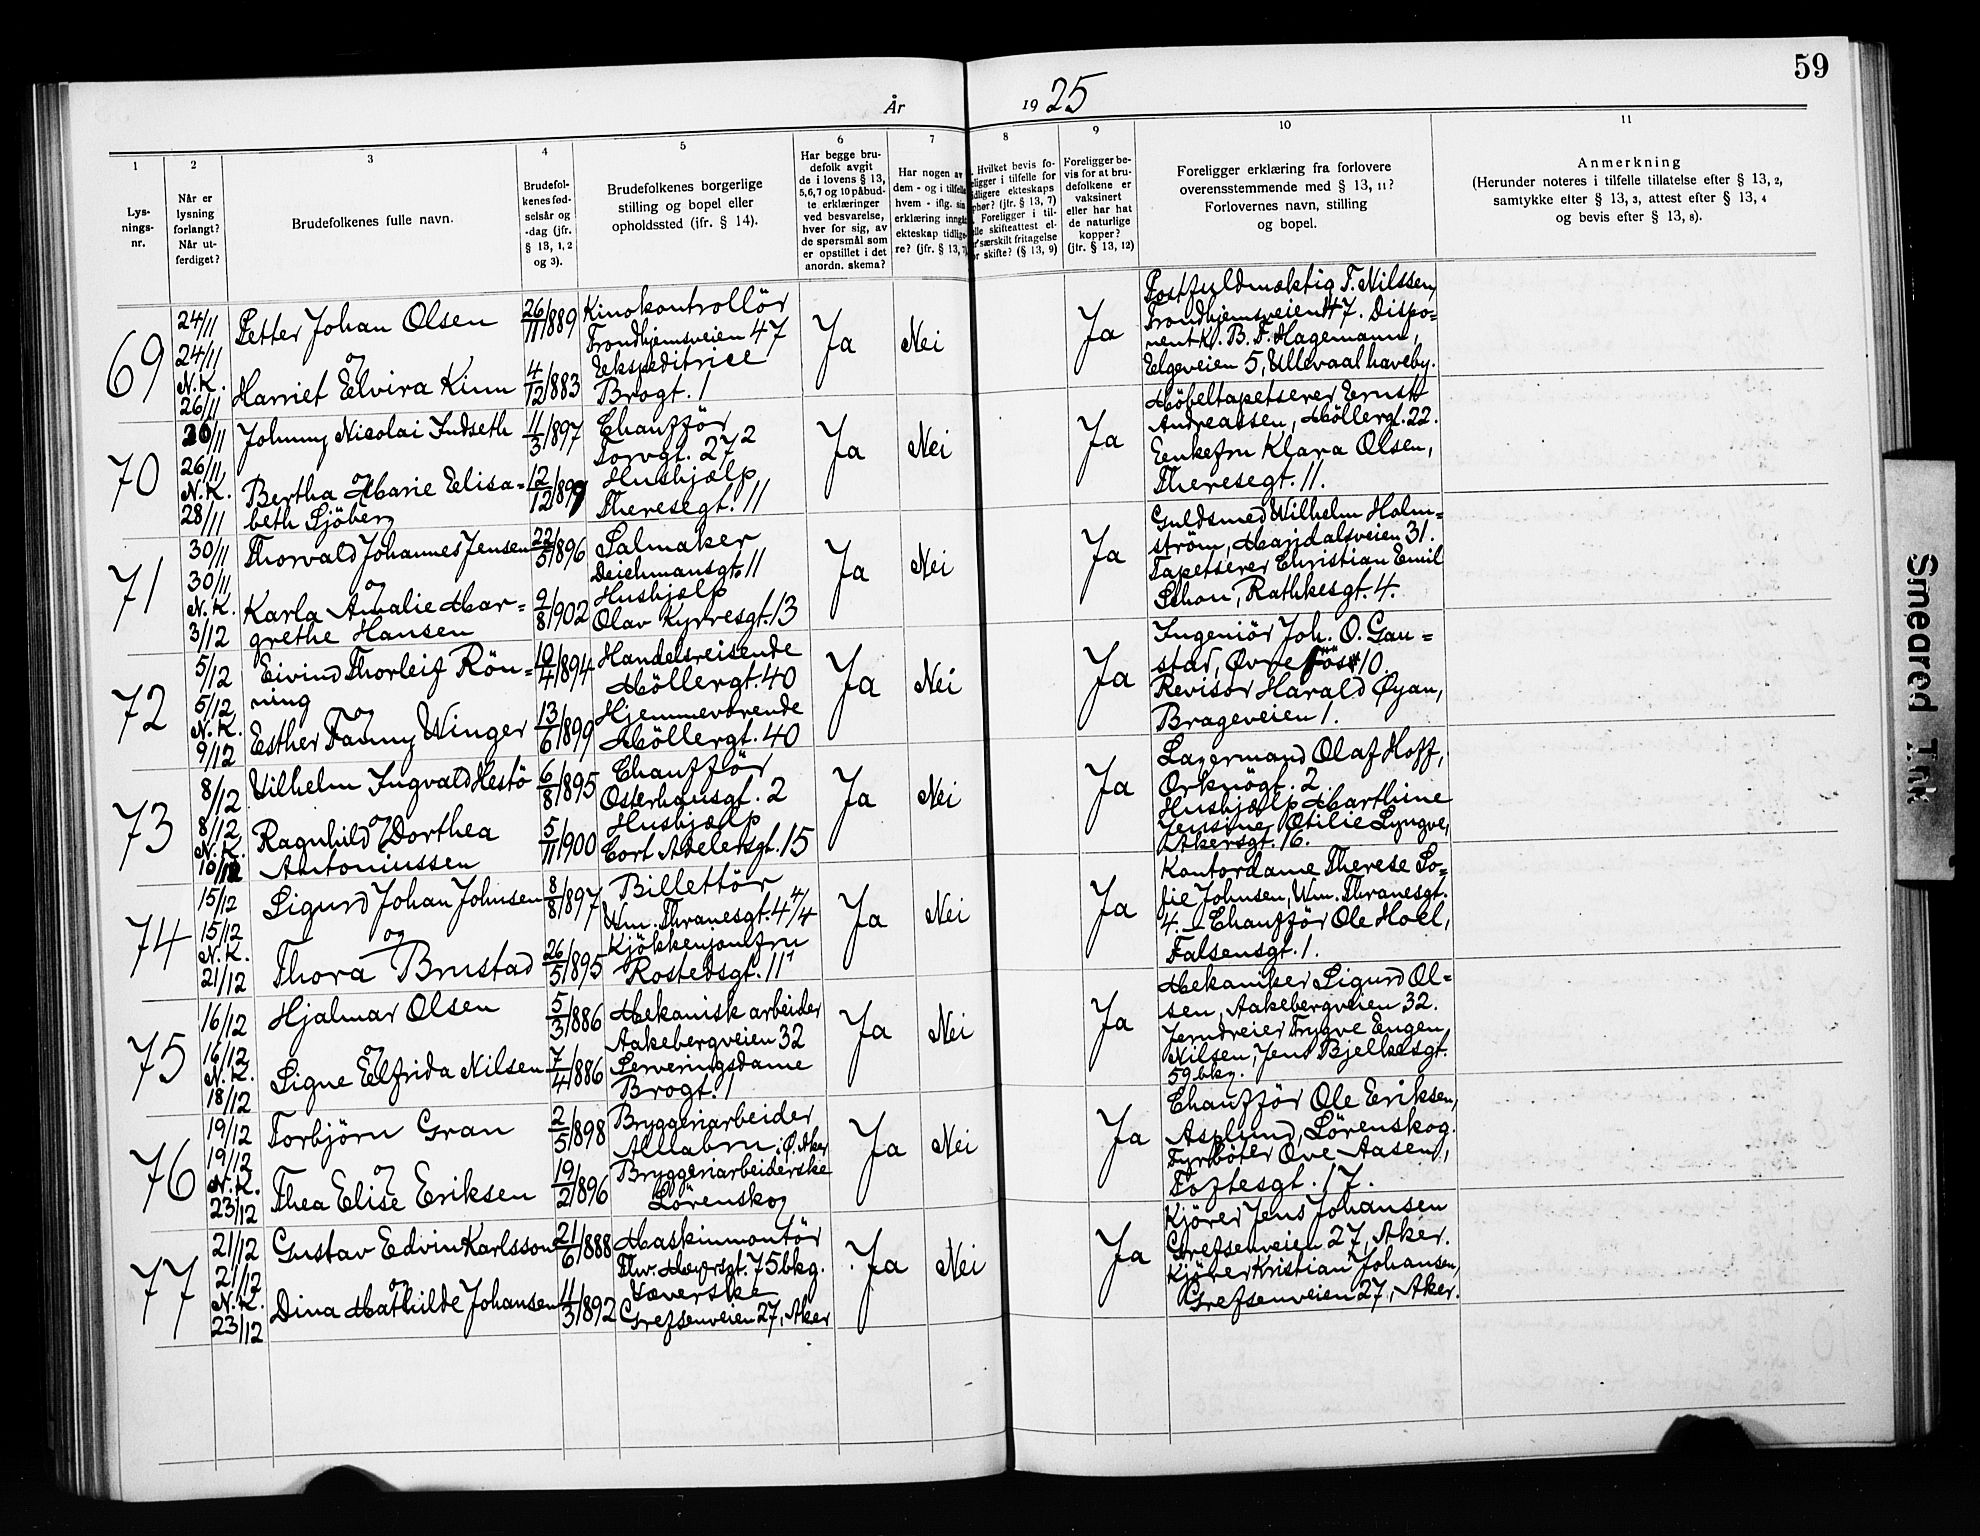 59
År 1925
1 2 3 4 5 6 7 8 9 10 11
Lys-
nings-
nr.
Når er
lysning
forlangt?
Når ut-
ferdiget?
Brudefolkenes fulle navn.
Brudefol-
kenes fød-
selsår og
-dag (jfr.
§ 13, 1, 2
og 3).
Brudefolkenes borgerlige
stilling og bopel eller
opholdssted (ifr. § 14).
Har begge bru-
defolk avgit
de i lovens § 13,
5,6,7 og 10 påbud-
te erklæringer
ved besvarelse,
hver for sig, av
de spørsmål som
er opstillet i det
anordn. skema?
Har nogen av
dem - og i tilfelle
hvem - iflg. sin
erklæring inngått
ekteskap tidlige-
re? (jfr. § 13, 7)
Hvilket bevis fo-
eligger i tilfelle for
idligere ekteskaps
phør? (jfr. § 13, 7)
Foreligger i til-
lle skifteattest el-
r særskilt fritagelse
or skifte? (§ 13, 9)
Foreligger be-
vis for at bru-
defolkene er
vaksinert
eller har hat
de naturlige
kopper?
(jfr. § 13, 12)
Foreligger erklæring fra forlovere
overensstemmende med § 13, 11?
Forlovernes navn, stilling
og bopel.
Anmerkning
(Herunder noteres i tilfelle tillatelse efter § 13, 2,
samtykke efter § 13, 3, attest efter § 13, 4
og bevis efter § 13, 8).
69
24/11
24/11
N.K.
26/11
Petter Johan Olsen
og
Harriet Elvira Kinn
26/11 1889
4/12 1883
Kinokontrollör
Trondhjemsveien 47
Ekspeditrice
Brogt. 1
Ja
Nei
Ja
Postfuldmæktig T. Nilssen,
Trondhjemsveien 47. Dispo-
nent K. B. F. Hagemann,
Elgeveien 5, Ullevaal haveby.
70
26/11
26/11
N.K.
28/11
Johnny Nicolai Indseth
og
Bertha Marie Elisa-
beth Sjöberg
11/3 1897
12/12 1899
Chauffør
Torvgt. 27 2
Hushjælp
Theresegt. 11
Ja
Nei
Ja
Möbeltapetserer Ernst
Andreassen, Möllergt. 22.
Enkefru Klara Olsen,
Theresegt. 11.
71
30/11
30/11
N.K.
3/12
Thorvald Johannes Jensen
og
Karla Amalie Mar-
grethe Hansen
22/5 1896
9/8 1902
Salmaker
Deichmansgt. 11
Hushjælp
Olav Kyrresgt. 13
Ja
Nei
Ja
Guldsmed Wilhelm Holm-
ström, Maridalsveien 31.
Tapetserer Christian Emil
Schou, Rathkesgt. 4.
72
5/12
5/12
N.K.
9/12
Eivind Thorleif Rön-
ning
og
Esther Fanny Winger
10/4 1894
13/6 1899
Handelsreisende
Möllergt. 40
Hjemmeværende
Möllergt. 40
Ja
Nei
Ja
Ingeniör Joh. O. Gau-
stad, Øvre 10.
Revisor Harald Øyan,
Brageveien 1.
73
8/12
8/12
N.K.
10/12
Vilhelm Ingvald Hestö
og
Ragnhild Dorthea
Antoniussen
6/8 1895
5/11 1900
Chauffør
Osterhausgt. 2
Hushjælp
Cort Adelersgt. 15
Ja
Nei
Ja
Lagermand Olaf Hoff,
Orknögt. 2
Hushjælp Marthine
Jensine Otilie Lyngve,
Akersgt. 16.
74
15/12
15/12
N.K.
21/12
Sigurd Johan Johnsen
og
Thora Brustad
8/8 1897
26/5 1895
Billettör
Wm. Thranesgt. 4 4/4
Kjökkenjomfru
Rostedsgt. 11 1
Ja
Nei
Ja
Kontordame Therese So-
fie Johnsen, Wm. Thranesgt.
4. – Chauffør Ole Hoel,
Falsensgt. 1.
75
16/12
16/12
N.K.
18/12
Hjalmar Olsen
og
Signe Elfrida Nilsen
5/3 1886
7/4 1886
Mekanisk arbeider
Aakebergveien 32
Serveringsdame
Brogt. 1
Ja
Nei
Ja
Mekaniker Sigurd Ol-
sen, Aakebergveien 32.
Jerndreier Trygve Eugen
Nilsen, Jens Bjelkesgt.
59 bkg.
76
19/12
19/12
N.K.
23/12
Torbjörn Gran
og
Thea Elise Eriksen
2/5 1898
19/2 1896
Bryggeriarbeider
Alnabru i Ø. Aker
Bryggeriarbeiderske
Lörenskog
Ja
Nei
Ja
Chauffør Ole Eriksen,
Asplund, Lörenskog.
Fyrböter Ove Aasen,
Toftesgt. 17.
77
21/12
21/12
N.K.
23/12
Gustav Edvin Karlsson
og
Dina Mathilde Johansen
21/6 1888
11/3 1892
Maskinmontör
Thv. Meyersgt. 75 bkg.
Væverske
Grefsenveien 27, Aker
Ja
Nei
Ja
Kjörer Jens Johansen
Grefsenveien 27, Aker.
Kjörer Kristian Johansen,
Grefsenveien 27, Aker.
Smeared Ink